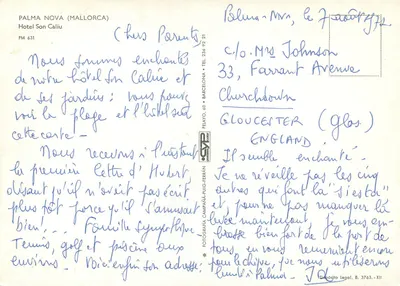 PALMA NOVA (MALLORCA)
Hotel Son Caliu
PM 631
Chers Parents
Nous sommes enchantés
de notre hôtel Son Caliu et
de ses jardins : vous pouvez
voir la plage et l'hôtel sur
cette carte -
Nous recevons à l'instant
la première lettre d'Hubert
disant qu'il n'avait pas écrit
plus tôt parce qu'il s'amusait
bien, .. Famille sympathique -
Tennis, golf et piscine aux
environs. Voici enfin son adresse :
Palma-Nova, le 7 août 1972
c/o. Mrs Johnson
33, Farrant Avenue
Churchdown
GLOUCESTER (Glos.)
ENGLAND
Il semble enchanté.
Je ne réveille pas les cinq
autres qui font la "siesta"
et, pour ne pas manquer la
levée maintenant, je vous em-
brasse bien fort de la part de
tous, en vous remerciant encore
pour le chèque, que nous utiliserons